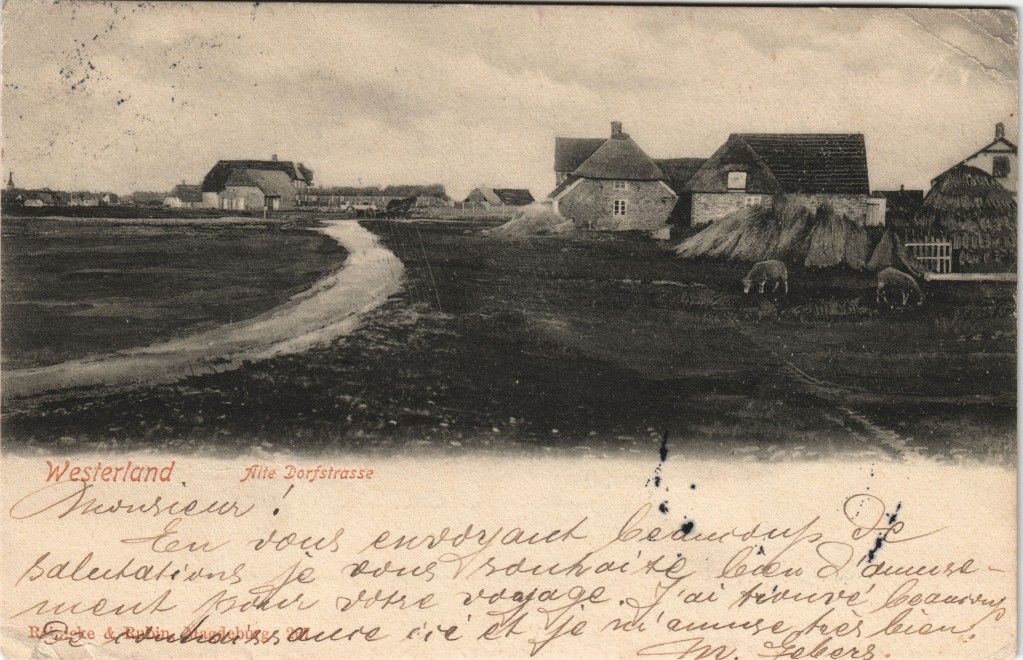 Westerland Alte Dorfstrasse
Monsieur!
En vous envoyant beaucoup de
salutations je vous souhaite bien d'amuse-
ment pour votre voyage. J'ai trouvé beaucoup
de connaissance ici et je m'amuse très bien.
& Rubin, Magdeburg.
M.